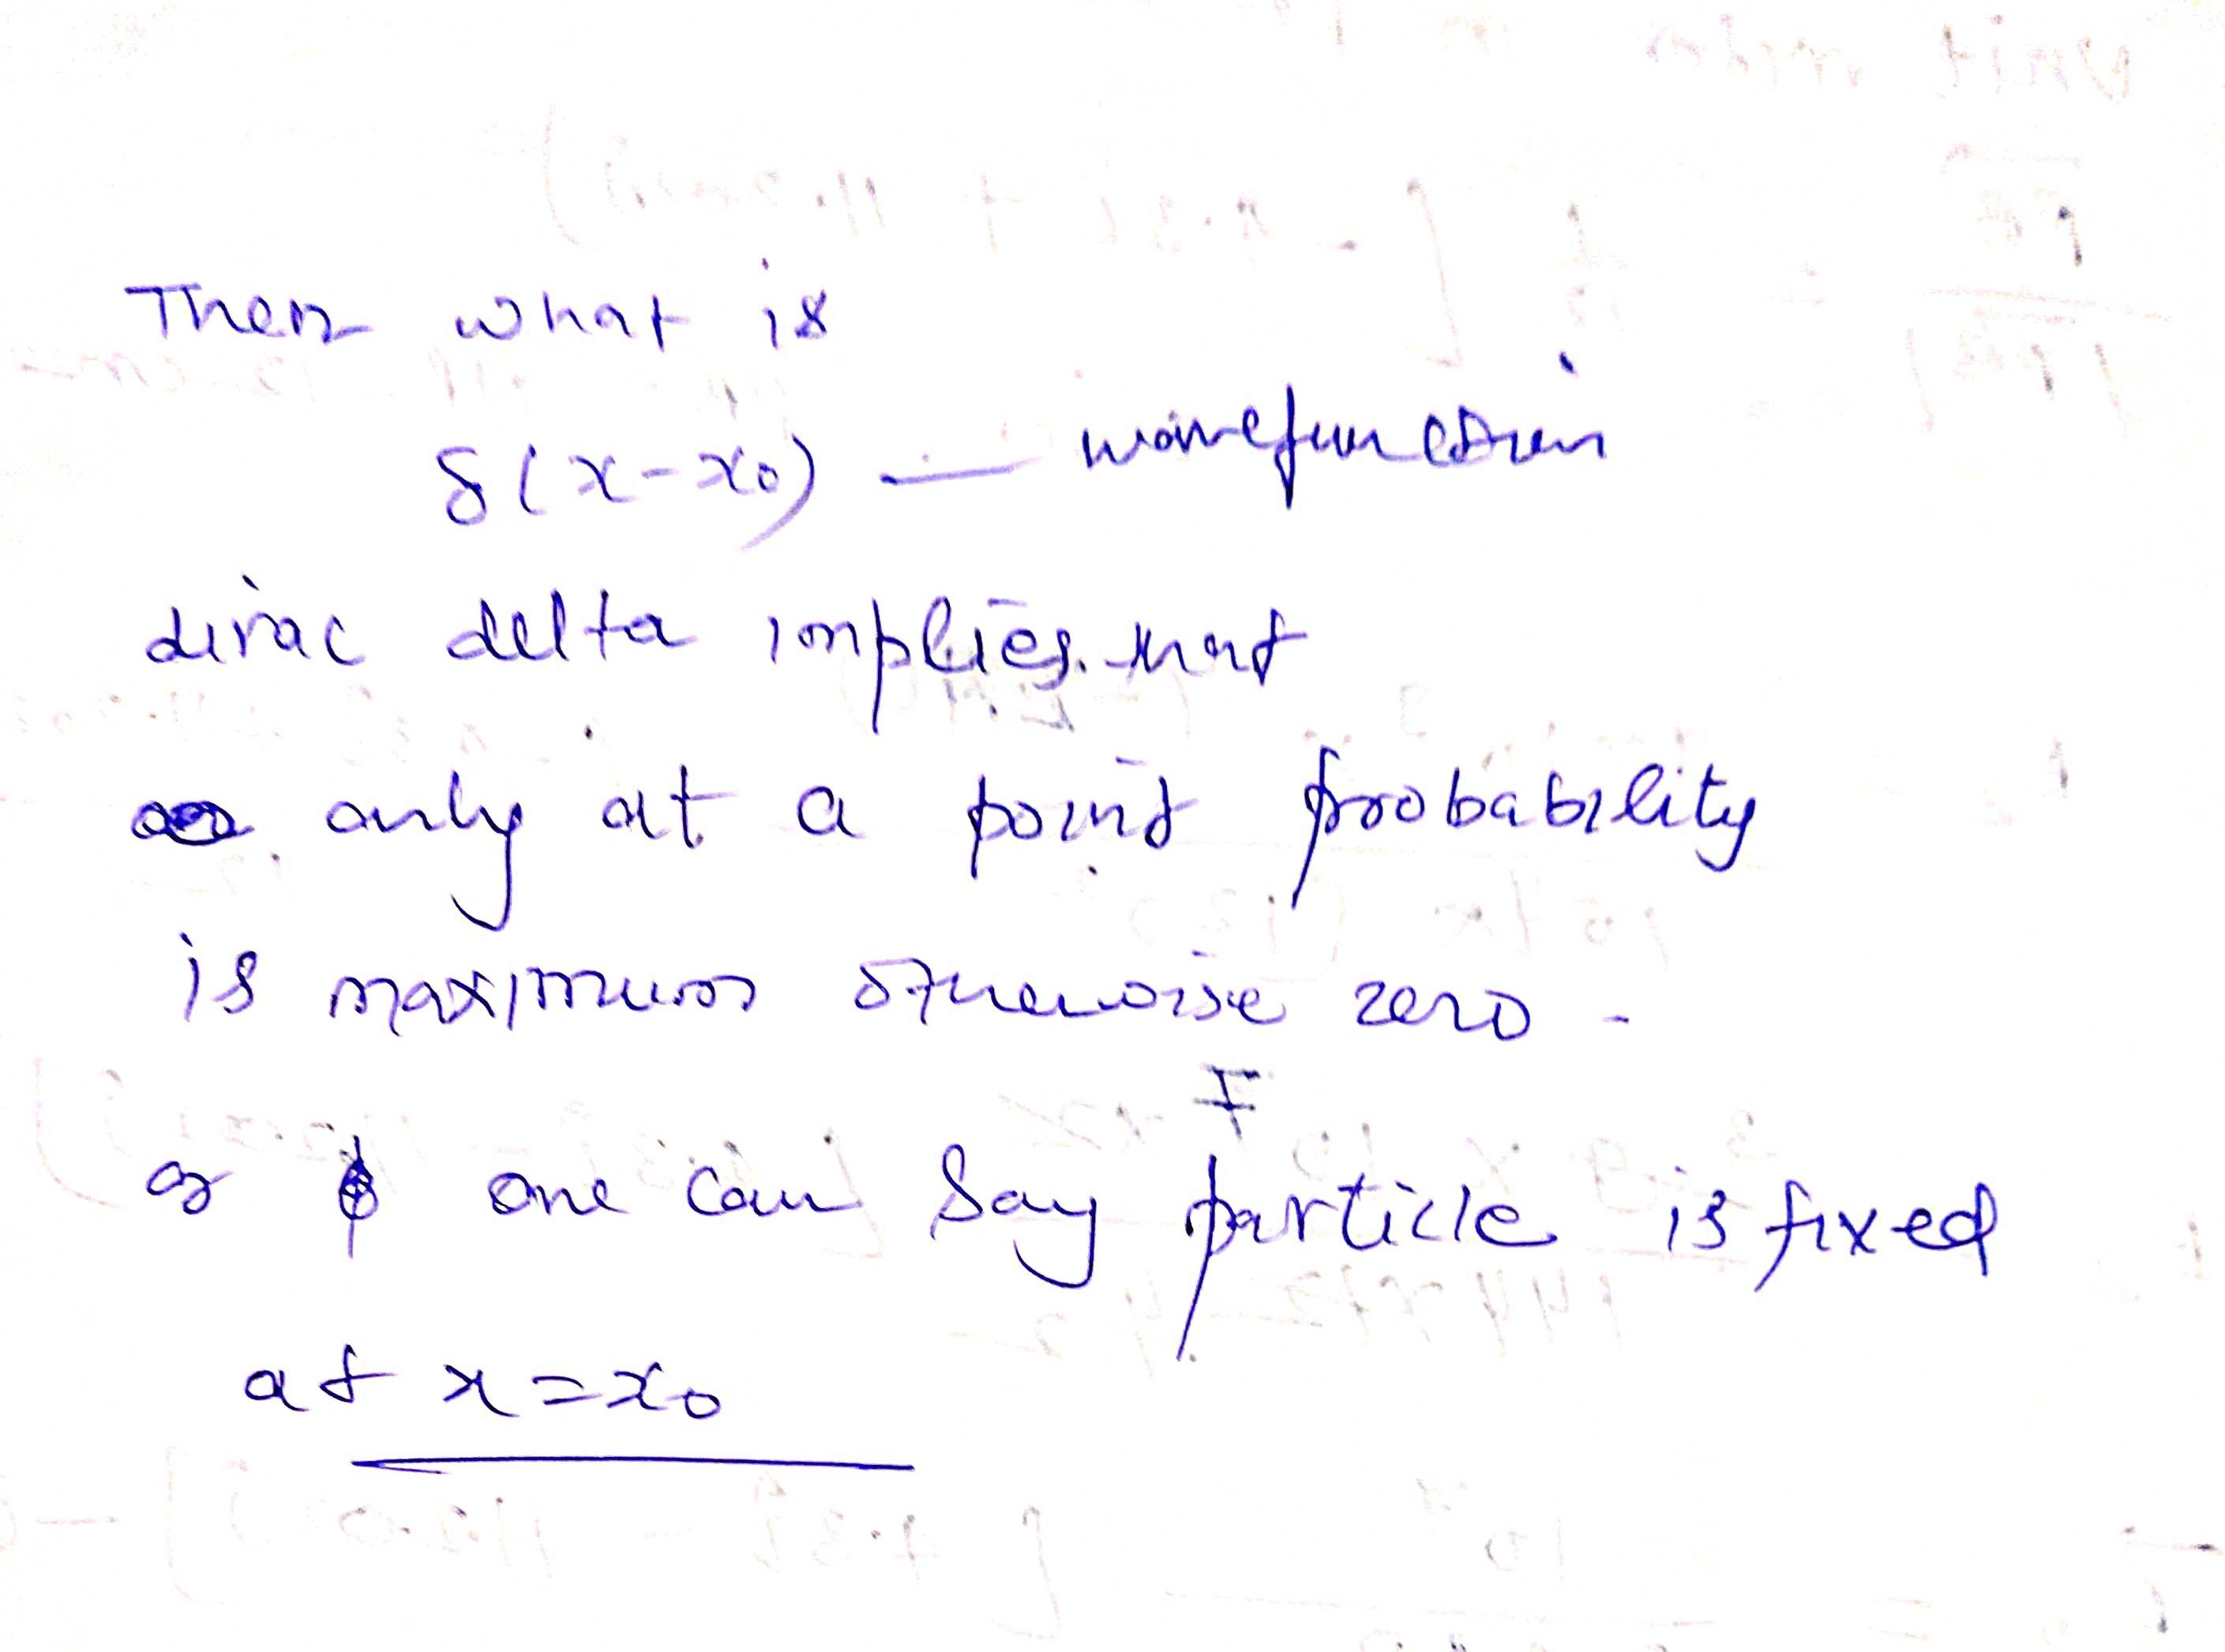 Then what is
δ(x-x₀) — wavefunction
dirac delta implies that
only at a point probability
is maximum otherwise zero -
or one can say particle is fixed
at x=x₀